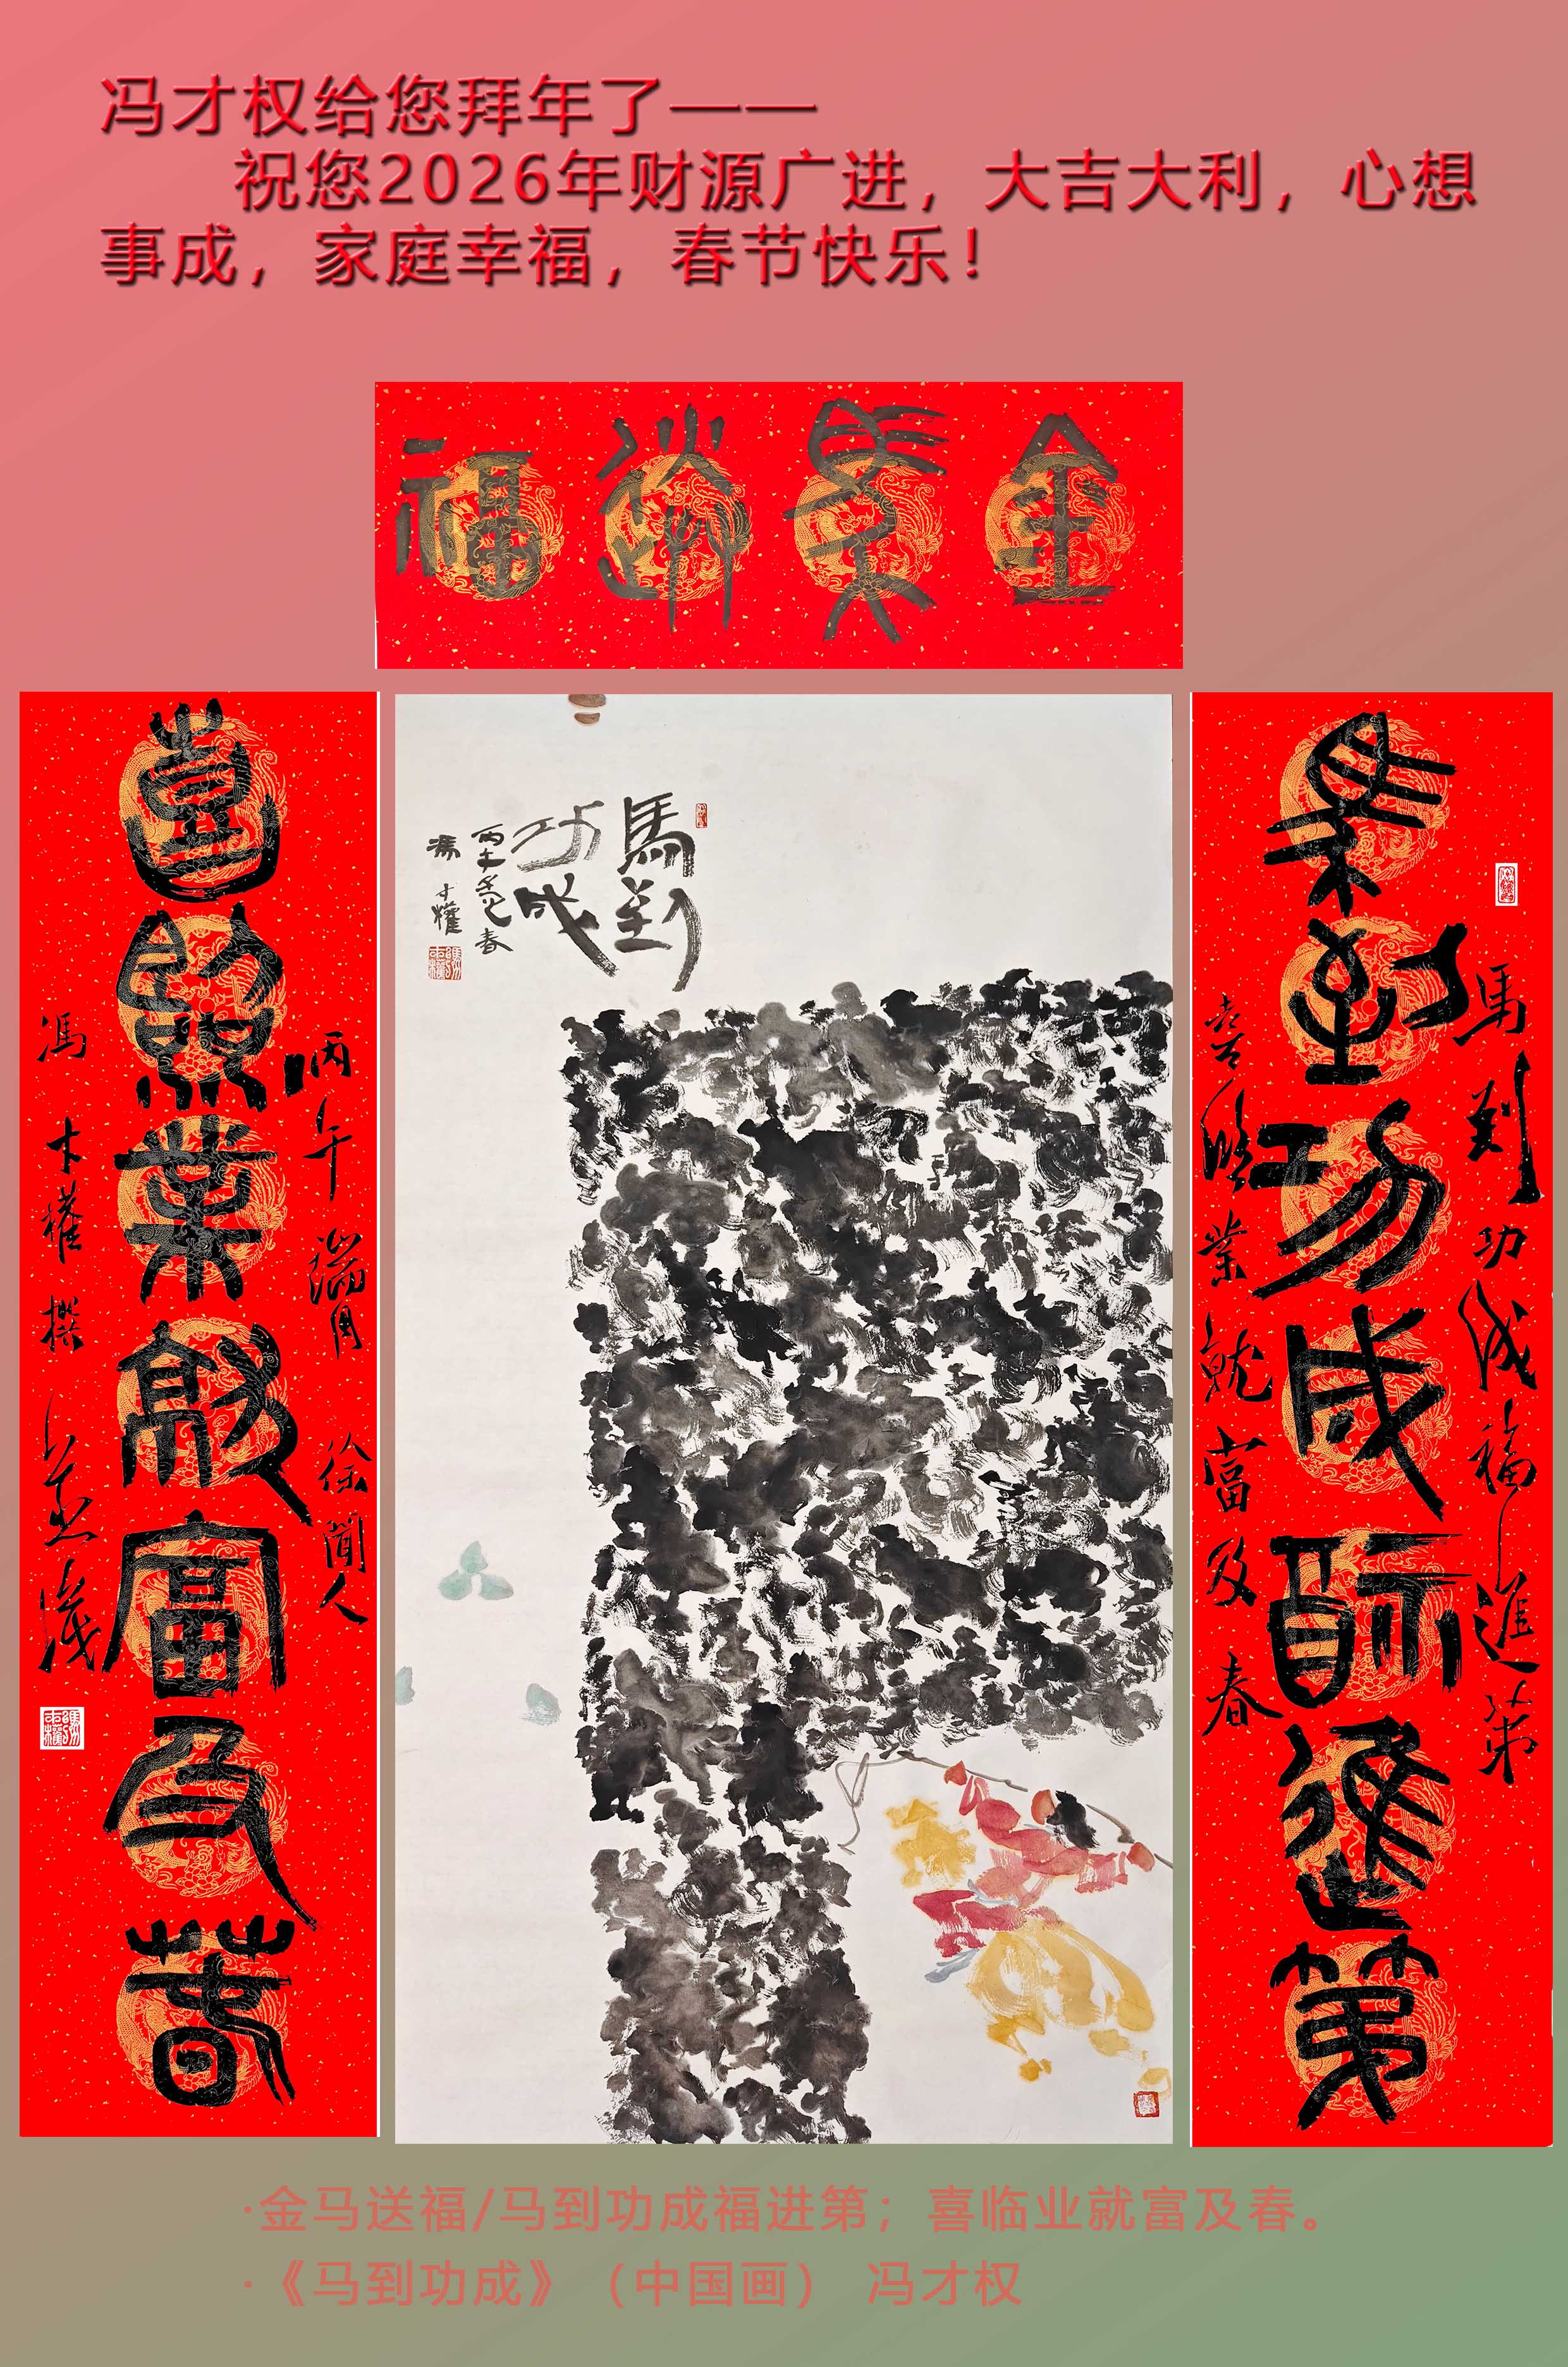 冯才权给您拜年了——
祝您2026年财源广进，大吉大利，心想
事成，家庭幸福，春节快乐！
金馬送福
馬到功成福進第
馬到功成福進第
喜臨業就富及春
喜臨業就富及春
丙午 徐聞人
馮才權撰
馬到
功成
丙午春
馮才權
·金马送福/马到功成福进第；喜临业就富及春。
·《马到功成》（中国画） 冯才权